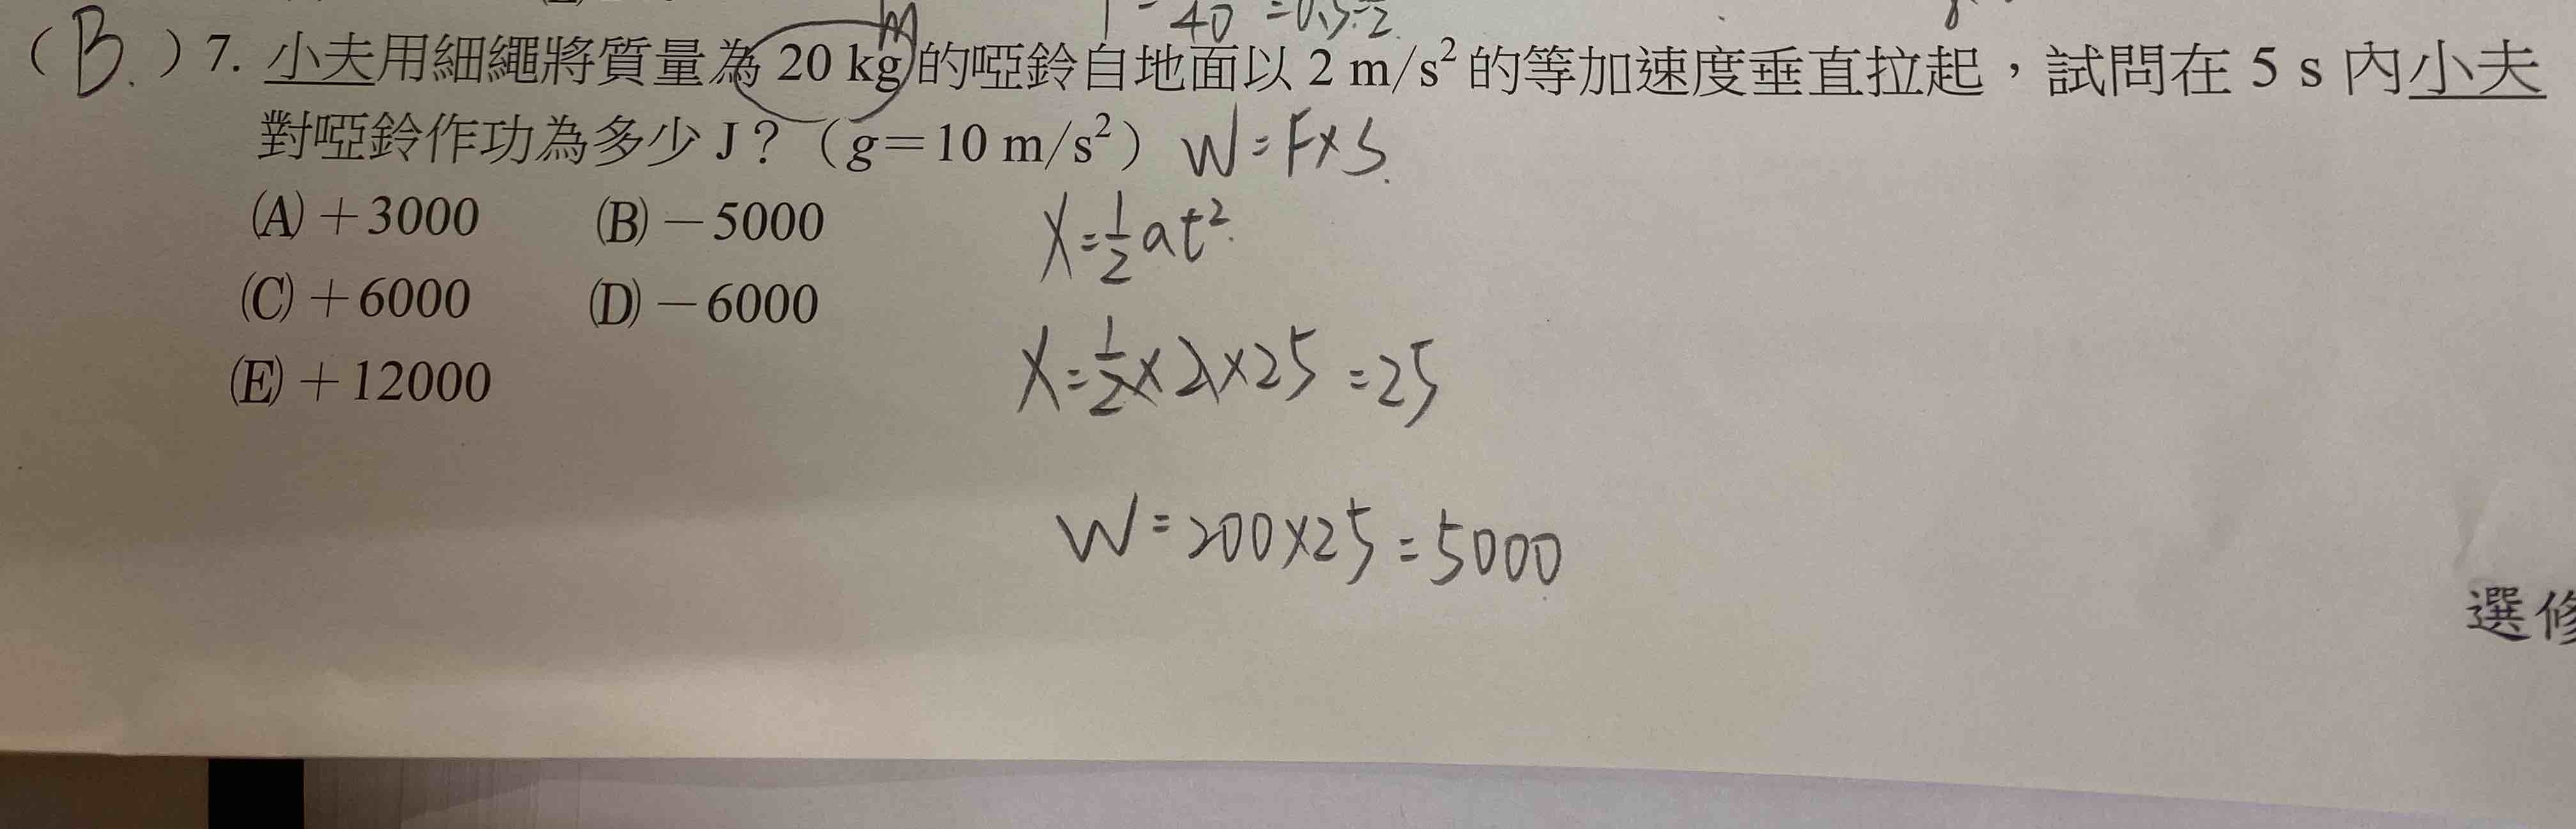 40 =0.5=1/2
(B.) 7. 小夫用細繩將質量為 20 kg 的啞鈴自地面以 2 m/s² 的等加速度垂直拉起，試問在 5 s 內小夫
m
對啞鈴作功為多少 J？（g＝10 m/s²） W=F×S.
(A)＋3000 (B)－5000
X=½at²
(C)＋6000 (D)－6000
X=½×2×25=25
(E)＋12000
W=200×25=5000
選修